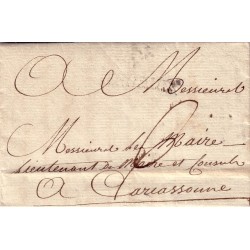 A Messieurs
Messieurs les Maire
Lieutenant de Maire et Consuls
A Carcassonne